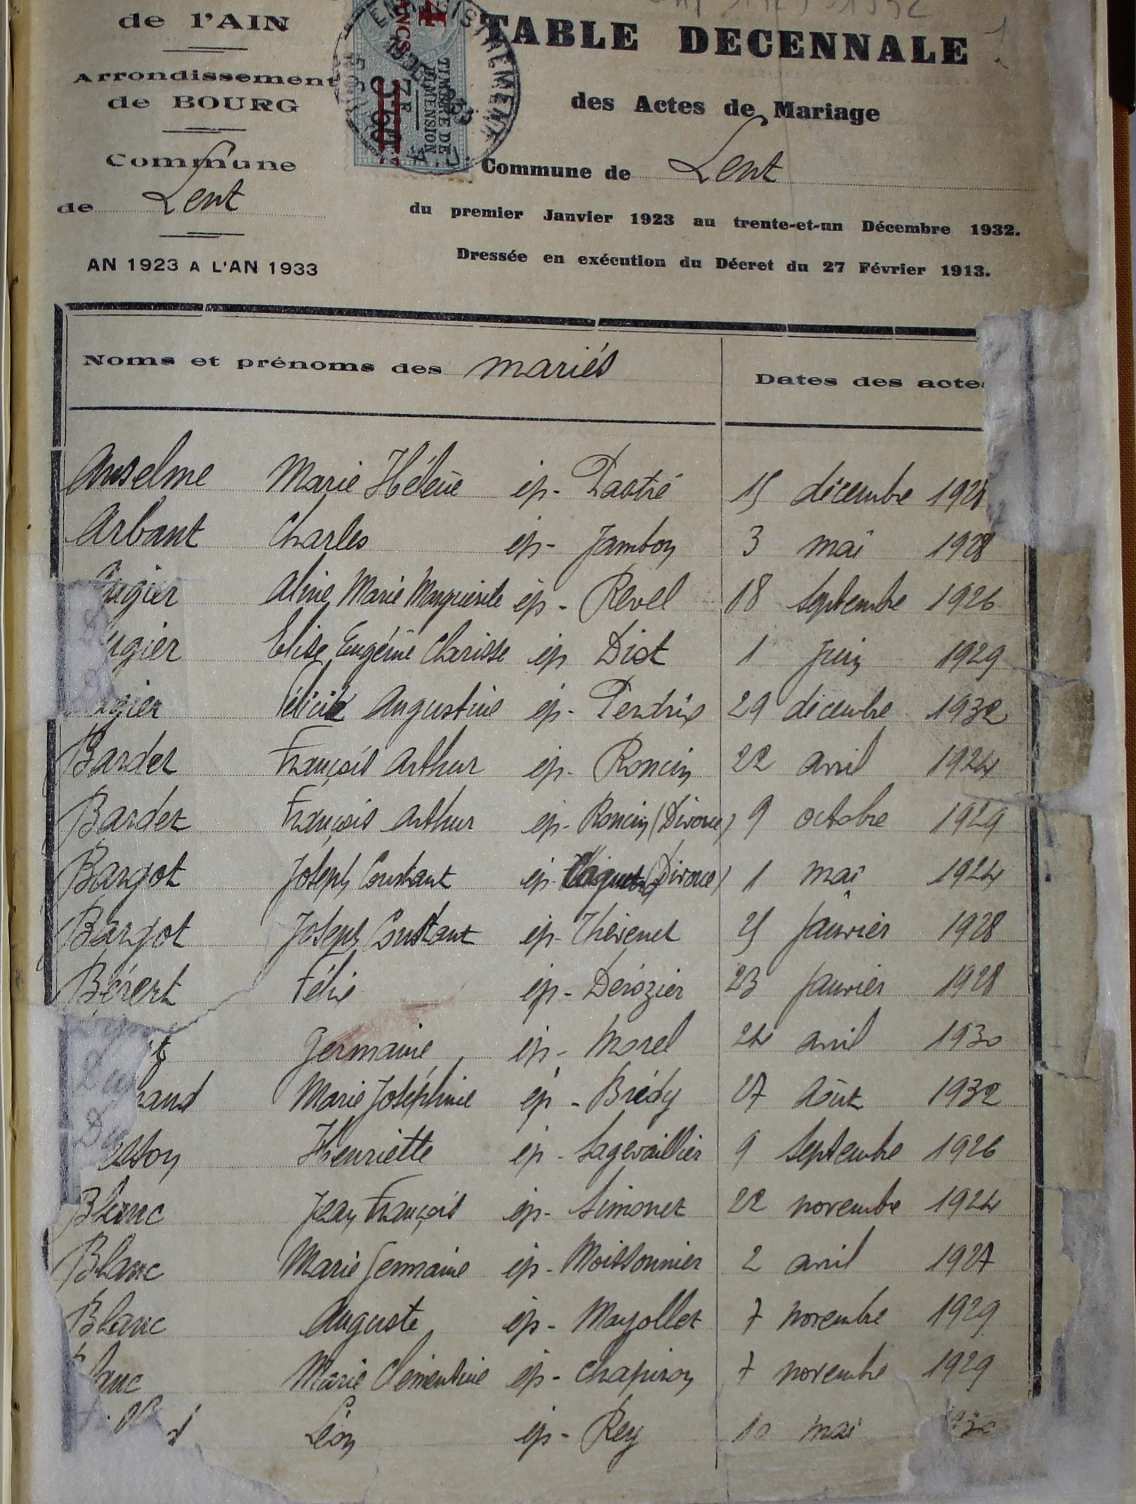 de l'AIN
Arrondissement
de BOURG
Commune
de Lent
AN 1923 A L'AN 1933
TIMBRE DE
DIMENSION
TABLE DECENNALE
des Actes de Mariage
Commune de Lent
du premier Janvier 1923 au trente-et-un Décembre 1932.
Dressée en exécution du Décret du 27 Février 1913.
Noms et prénoms des mariés Dates des actes
Anselme Marie Hélène ép- 15 décembre
Arbant Charles ép- Jambon 3 mai 1928
ugier Aline Marie Marguerite ép- Revel 18 septembre 1926
ugier Elise Eugénie Clarisse ép Diot 1 Juin 1929
gier Félicie Augustine ép- Perdrix 29 décembre 1932
Bardet François Arthur ép- Roncin 22 avril 1924
Bardet François Arthur ép- Roncin (Divorce) 9 octobre 1929
Bargot Joseph Constant ép (Divorce) 1 mai 1924
Bargot Joseph Constant ép- Thévenet 25 Janvier 1928
Bérert Félix ép- Dérozier 23 Janvier 1928
Germaine ép- Morel 24 avril 1930
rand Marie Joséphine ép- Brédy 27 Août 1932
sson Henriette ép- 9 septembre 1926
Blanc Jean François ép- Simonet 22 novembre 1924
Blanc Marie Germaine ép- Moissonnier 2 avril 1927
Blanc Auguste ép- Mayollet 7 novembre 1929
lanc Marie Clémentine ép- Chapiron 7 novembre 1929
Léon ép- Rey 10 mai